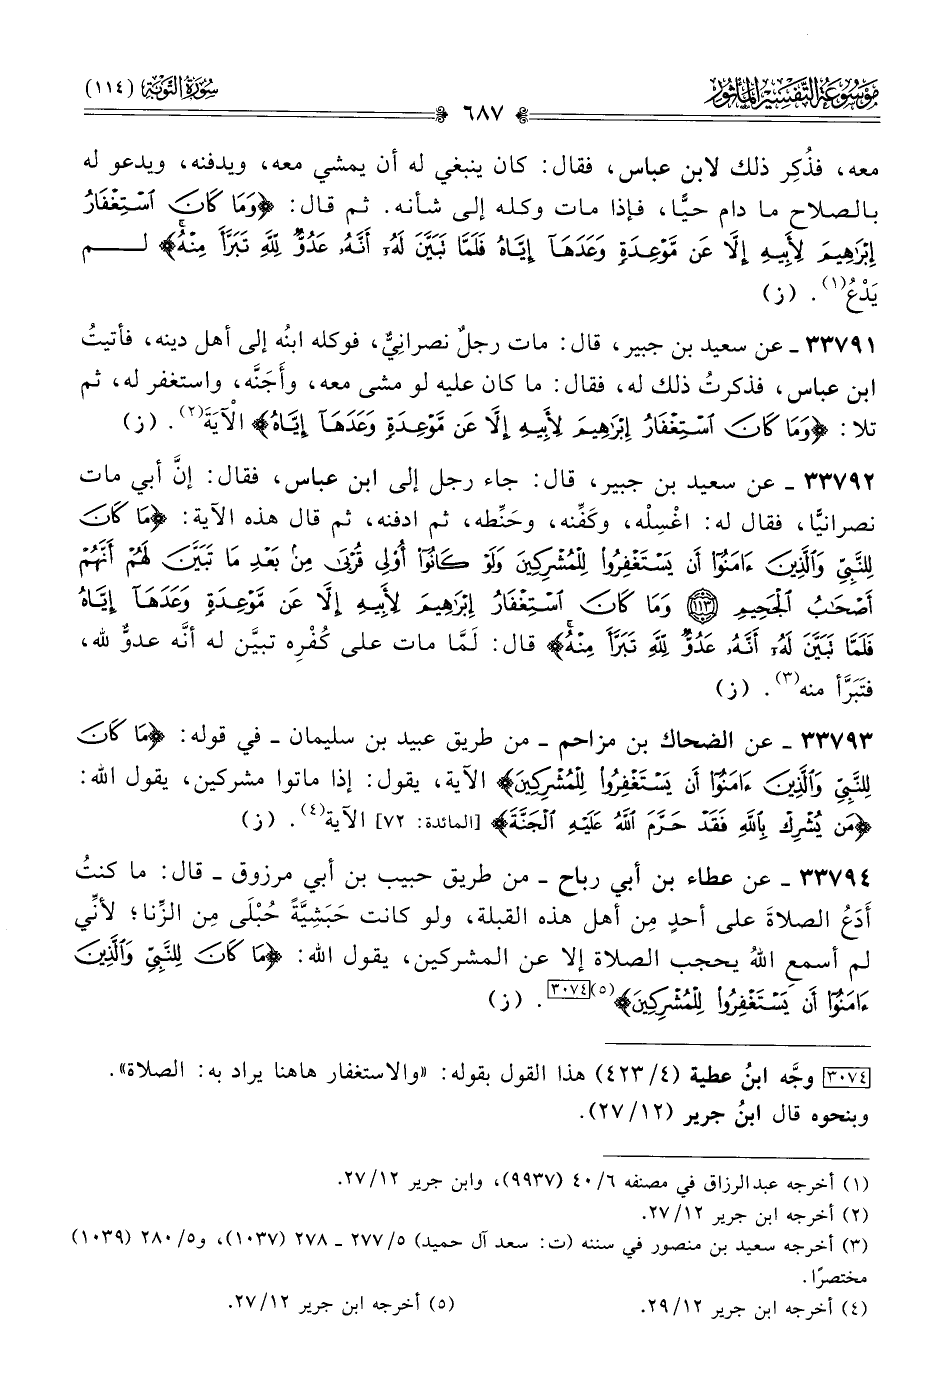 موسوعة التفسير المأثور
سورة التوبة (١١٤)
٦٨٧
معه، فذُكِر ذلك لابن عباس، فقال: كان ينبغي له أن يمشي معه، ويدفنه، ويدعو له
بالصلاح ما دام حيًّا، فإذا مات وكله إلى شأنه. ثم قال: ﴿وَمَا كَانَ ٱسْتِغْفَارُ
إِبْرَٰهِيمَ لِأَبِيهِ إِلَّا عَن مَّوْعِدَةٍ وَعَدَهَآ إِيَّاهُ فَلَمَّا تَبَيَّنَ لَهُۥٓ أَنَّهُۥ عَدُوٌّ لِّلَّهِ تَبَرَّأَ مِنْهُ﴾ لـــم
يَدْعُ(١). (ز)
٣٣٧٩١ ـ عن سعيد بن جبير، قال: مات رجلٌ نصرانِيٌّ، فوكله ابنُه إلى أهل دينه، فأتيتُ
ابن عباس، فذكرتُ ذلك له، فقال: ما كان عليه لو مشى معه، وأَجَنَّه، واستغفر له، ثم
تلا: ﴿وَمَا كَانَ ٱسْتِغْفَارُ إِبْرَٰهِيمَ لِأَبِيهِ إِلَّا عَن مَّوْعِدَةٍ وَعَدَهَآ إِيَّاهُ﴾ الْآيَةَ(٢). (ز)
٣٣٧٩٢ ـ عن سعيد بن جبير، قال: جاء رجل إلى ابن عباس، فقال: إنَّ أبي مات
نصرانيًّا، فقال له: اغْسِلْه، وكَفِّنه، وحَنِّطه، ثم ادفنه، ثم قال هذه الآية: ﴿مَا كَانَ
لِلنَّبِىِّ وَٱلَّذِينَ ءَامَنُوٓا۟ أَن يَسْتَغْفِرُوا۟ لِلْمُشْرِكِينَ وَلَوْ كَانُوٓا۟ أُو۟لِى قُرْبَىٰ مِنۢ بَعْدِ مَا تَبَيَّنَ لَهُمْ أَنَّهُمْ
أَصْحَٰبُ ٱلْجَحِيمِ ۝١١٣ وَمَا كَانَ ٱسْتِغْفَارُ إِبْرَٰهِيمَ لِأَبِيهِ إِلَّا عَن مَّوْعِدَةٍ وَعَدَهَآ إِيَّاهُ
فَلَمَّا تَبَيَّنَ لَهُۥٓ أَنَّهُۥ عَدُوٌّ لِّلَّهِ تَبَرَّأَ مِنْهُ﴾ قال: لَمَّا مات على كُفْرِه تبيَّن له أنَّه عدوٌّ لله،
فتَبَرَّأ منه(٣). (ز)
٣٣٧٩٣ ـ عن الضحاك بن مزاحم ـ من طريق عبيد بن سليمان ـ في قوله: ﴿مَا كَانَ
لِلنَّبِىِّ وَٱلَّذِينَ ءَامَنُوٓا۟ أَن يَسْتَغْفِرُوا۟ لِلْمُشْرِكِينَ﴾ الآية، يقول: إذا ماتوا مشركين، يقول الله:
﴿مَن يُشْرِكْ بِٱللَّهِ فَقَدْ حَرَّمَ ٱللَّهُ عَلَيْهِ ٱلْجَنَّةَ﴾ [المائدة: ٧٢] الآية(٤). (ز)
٣٣٧٩٤ ـ عن عطاء بن أبي رباح ـ من طريق حبيب بن أبي مرزوق ـ قال: ما كنتُ
أَدَعُ الصلاةَ على أحدٍ مِن أهل هذه القبلة، ولو كانت حَبَشِيَّةً حُبْلَى مِن الزِّنا؛ لأنِّي
لم أسمعِ اللهُ يحجب الصلاة إلا عن المشركين، يقول الله: ﴿مَا كَانَ لِلنَّبِىِّ وَٱلَّذِينَ
ءَامَنُوٓا۟ أَن يَسْتَغْفِرُوا۟ لِلْمُشْرِكِينَ﴾(٥)[٣٠٧٤]. (ز)
[٣٠٧٤] وجَّه ابنُ عطية (٤/٤٢٣) هذا القول بقوله: «والاستغفار هاهنا يراد به: الصلاة».
وبنحوه قال ابنُ جرير (١٢/٢٧).
(١) أخرجه عبدالرزاق في مصنفه ٦/٤٠ (٩٩٣٧)، وابن جرير ١٢/٢٧.
(٢) أخرجه ابن جرير ١٢/٢٧.
(٣) أخرجه سعيد بن منصور في سننه (ت: سعد آل حميد) ٥/٢٧٧ ـ ٢٧٨ (١٠٣٧)، و٥/٢٨٠ (١٠٣٩)
مختصرًا.
(٤) أخرجه ابن جرير ١٢/٢٩.
(٥) أخرجه ابن جرير ١٢/٢٧.